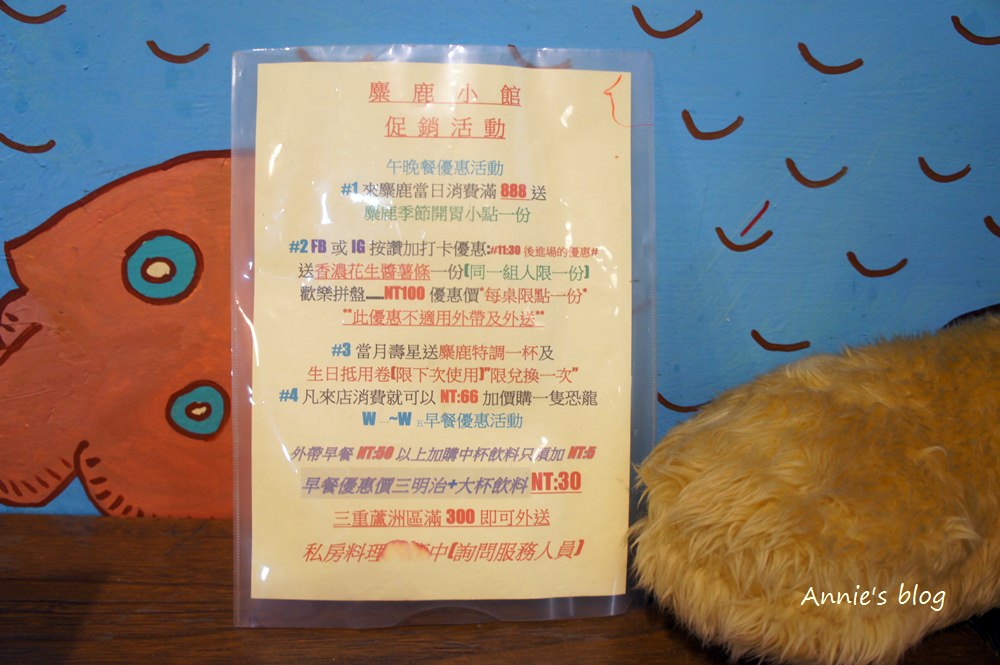 麋鹿小館
促銷活動
午晚餐優惠活動
#1 來麋鹿當日消費滿 888 送
麋鹿季節開胃小點一份
#2 FB 或 IG 按讚加打卡優惠:#11:30 後進場的優惠#
送香濃花生醬薯條一份(同一組人限一份)
歡樂拼盤......NT100 優惠價*每桌限點一份*
**此優惠不適用外帶及外送**
#3 當月壽星送麋鹿特調一杯及
生日抵用卷(限下次使用)"限兌換一次"
#4 凡來店消費就可以 NT:66 加價購一隻恐龍
W 一~W 五早餐優惠活動
外帶早餐 NT:50 以上加購中杯飲料只須加 NT:5
早餐優惠價三明治+大杯飲料 NT:30
三重蘆洲區滿 300 即可外送
私房料理 中(詢問服務人員)
Annie's blog